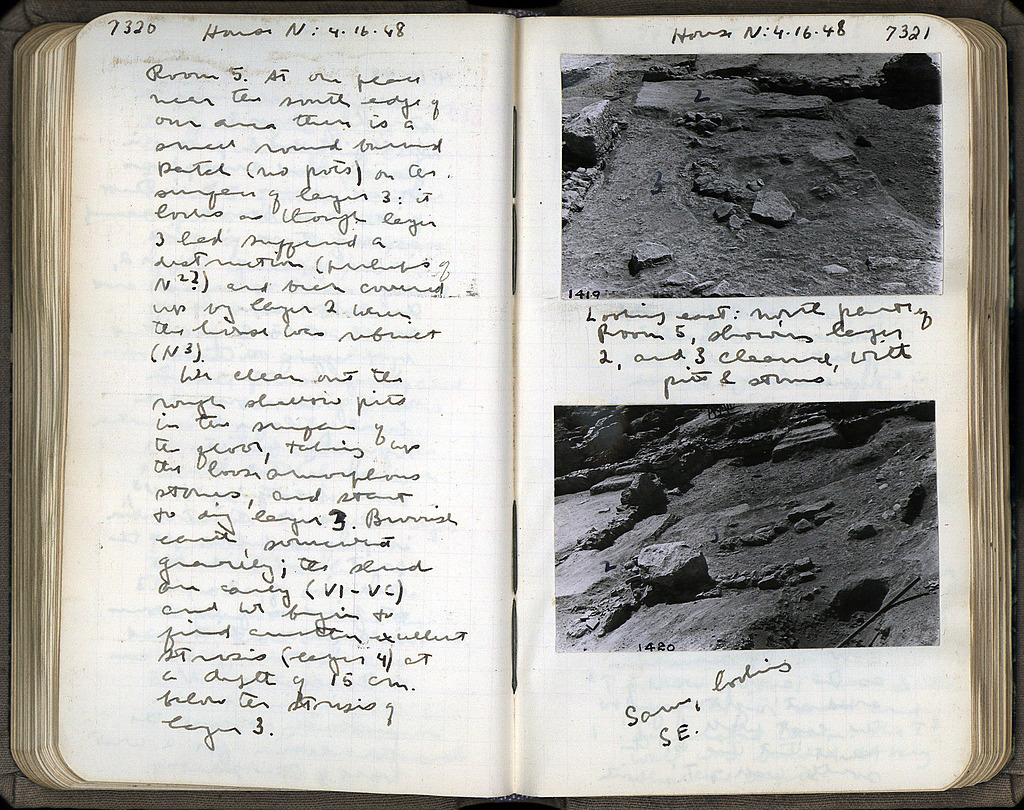 7320 House N: 4.16.48
Room 5. At one place
near the south edge of
our area there is a
small round burned
patch (no pots) on the
surface of layer 3: it
looks as though layer
3 had suffered a
destruction (perhaps of
N²?) and been covered
up by layer 2 when
the house was rebuilt
(N³).
We clean out the
rough shallow pits
in the surface of
the floor, taking up
the loose amorphous
stones, and start
to dig layer 3. Brownish
earth, somewhat
gravelly; the sherds
are early (VI-VC)
and we begin to
find another excellent
strosis (layer 4) at
a depth of 15 cm.
below the strosis of
layer 3.
House N: 4.16.48 7321
2
3
1419
Looking east: north part of
Room 5, showing layer
2, and 3 cleaned, with
pits & stones
3
2
1420
Same, looking
SE.